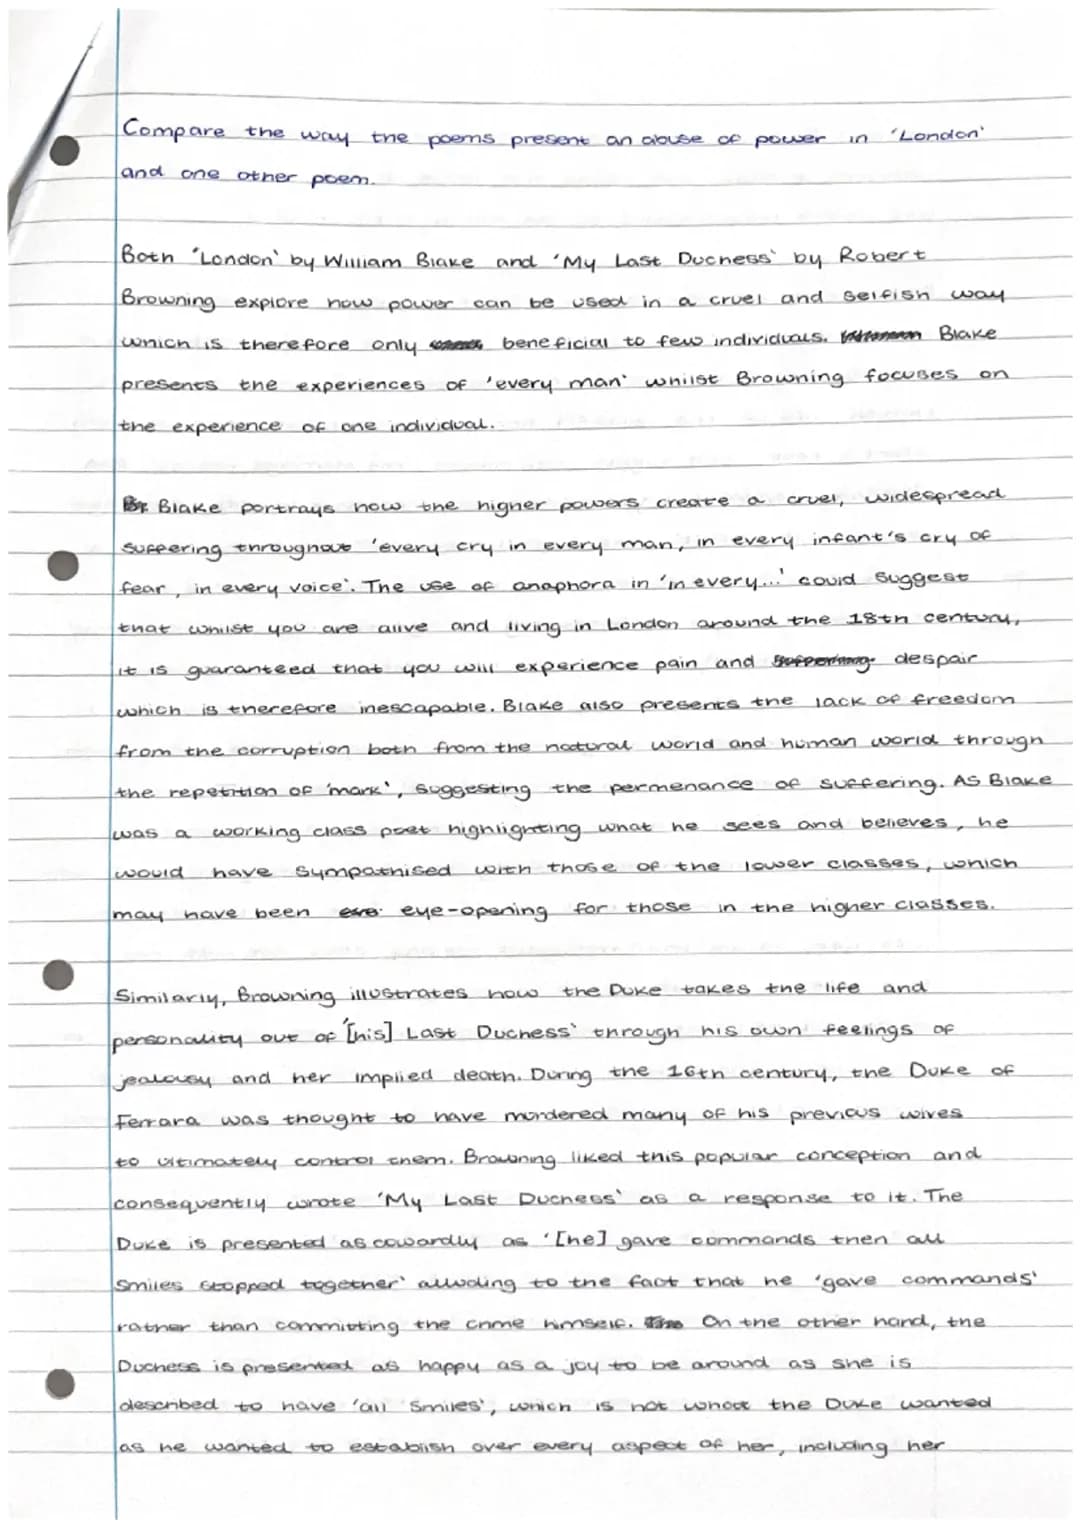 Compare the way the poems present an abuse of power in 'London'
and one other poem.
Both 'London' by William Blake and 'My Last Duchess' by Robert
Browning explore how power can be used in a cruel and selfish way
which is therefore only beneficial to few individuals. Blake
presents the experiences of 'every man' whilst Browning focuses on
the experience of one individual.
Blake portrays how the higher powers create a cruel, widespread
suffering throughout 'every cry in every man, in every infant's cry of
fear, in every voice'. The use of anaphora in 'in every...' could suggest
that whilst you are alive and living in London around the 18th century,
it is guaranteed that you will experience pain and suffering despair
which is therefore inescapable. Blake also presents the lack of freedom
from the corruption both from the natural world and human world through
the repetition of 'mark', suggesting the permenance of suffering. As Blake
was a working class poet highlighting what he sees and believes, he
would have sympathised with those of the lower classes, which
may have been eye-opening for those in the higher classes.
Similarly, Browning illustrates how the Duke takes the life and
personality out of '[his] Last Duchess' through his own feelings of
jealousy and her implied death. During the 16th century, the Duke of
Ferrara was thought to have murdered many of his previous wives
to ultimately control them. Browning liked this popular conception and
consequently wrote 'My Last Duchess' as a response to it. The
Duke is presented as cowardly as '[he] gave commands then all
smiles stopped together' alluding to the fact that he 'gave commands'
rather than committing the crime himself. On the other hand, the
Duchess is presented as happy as a joy to be around as she is
described to have 'all smiles', which is not what the Duke wanted
as he wanted to establish over every aspect of her, including her